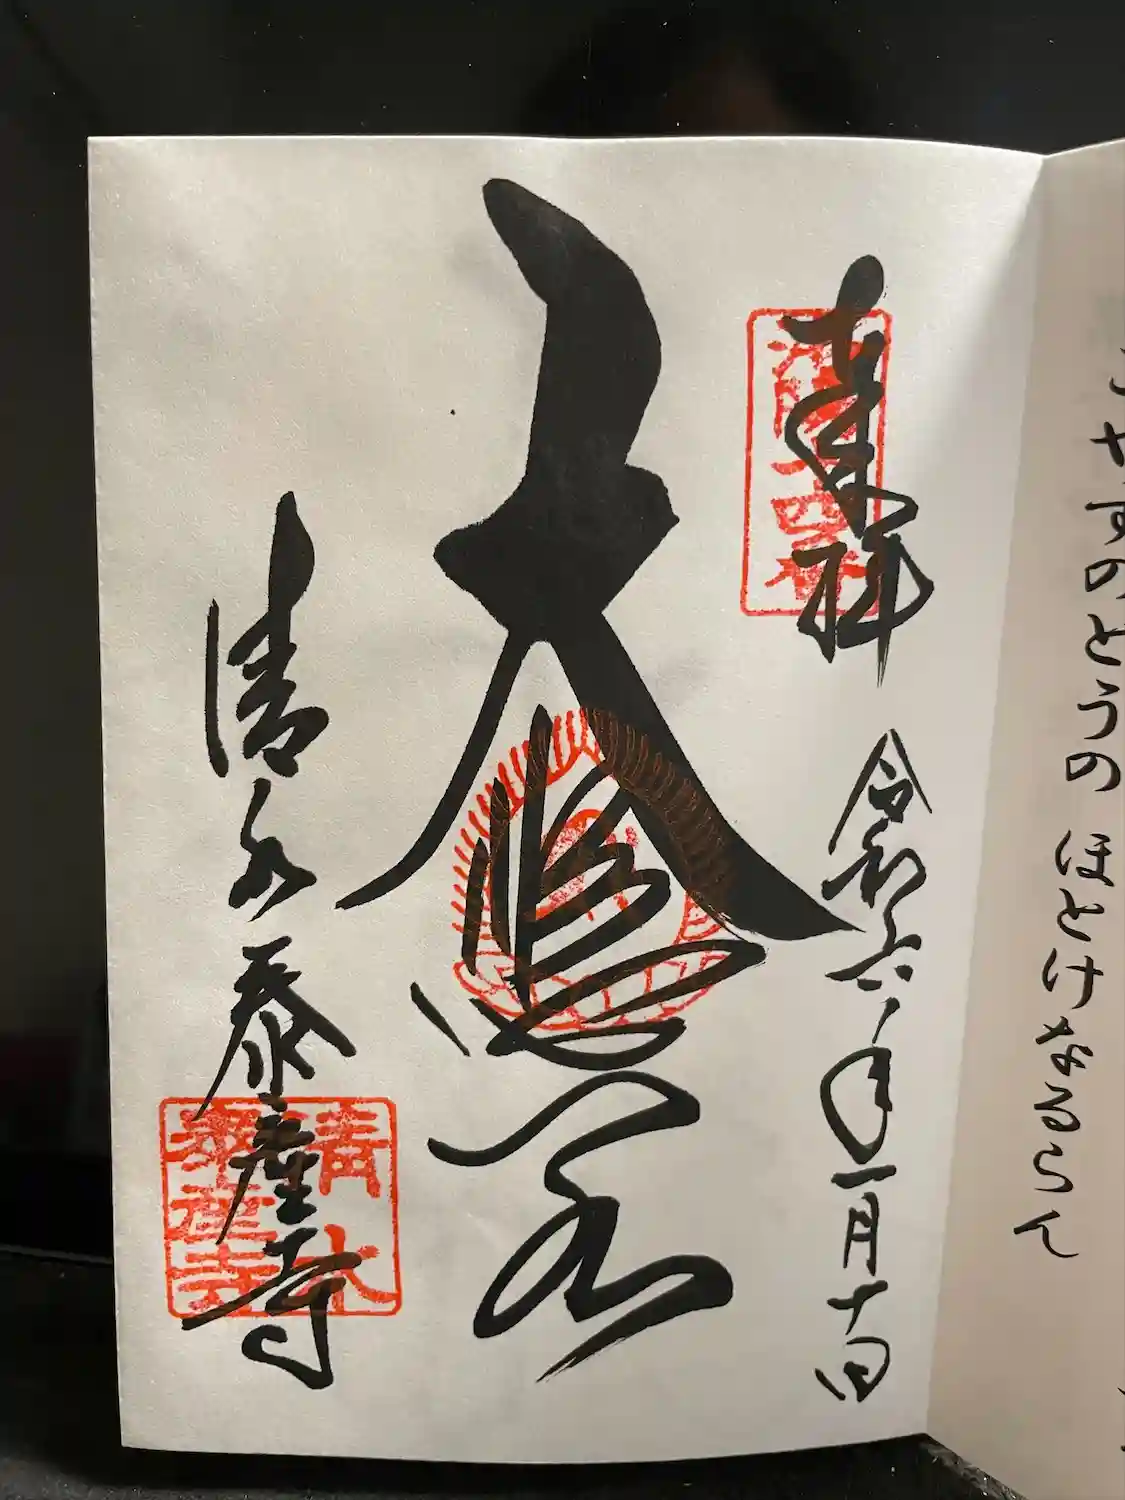 やすのとうの ほとけなるらん
奉拝 令和六年一月十日
洛陽十四番
大悲閣
清水泰産寺
清水
泰産寺